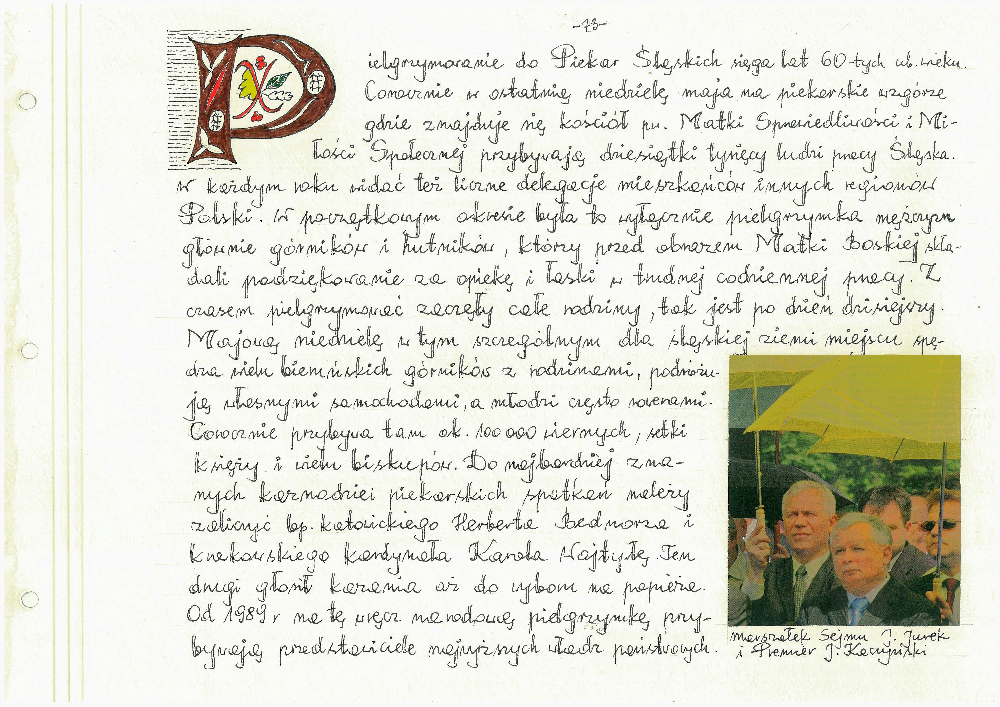 -73-
Pielgrzymowanie do Piekar Śląskich sięga lat 60-tych ub. wieku.
Corocznie w ostatnią niedzielę maja na piekarskie wzgórze
gdzie znajduje się kościół pw. Matki Sprawiedliwości i Mi-
łości Społecznej przybywają dziesiątki tysięcy ludzi pracy Śląska.
W każdym roku widać też liczne delegacje mieszkańców innych regionów
Polski. W początkowym okresie była to wyłącznie pielgrzymka mężczyzn
głównie górników i hutników, którzy przed obrazem Matki Boskiej skła-
dali podziękowanie za opiekę i łaski w trudnej codziennej pracy. Z
czasem pielgrzymować zaczęły całe rodziny, tak jest po dzień dzisiejszy.
Majową niedzielę w tym szczególnym dla śląskiej ziemi miejscu spę-
dza wielu bieruńskich górników z rodzinami, podróżu-
ją własnymi samochodami, a młodzi często rowerami.
Corocznie przybywa tam ok. 100 000 wiernych, setki
księży i wielu biskupów. Do najbardziej zna-
nych kaznodziei piekarskich spotkań należy
zaliczyć bp. katowickiego Herberta Bednorza i
krakowskiego kardynała Karola Wojtyłę. Ten
drugi głosił kazania aż do wyboru na papieża.
Od 1989 r na tę wręcz narodową pielgrzymkę przy-
bywają przedstawiciele najwyższych władz państwowych.
marszałek Sejmu J. Jurek
i Premier J. Kaczyński